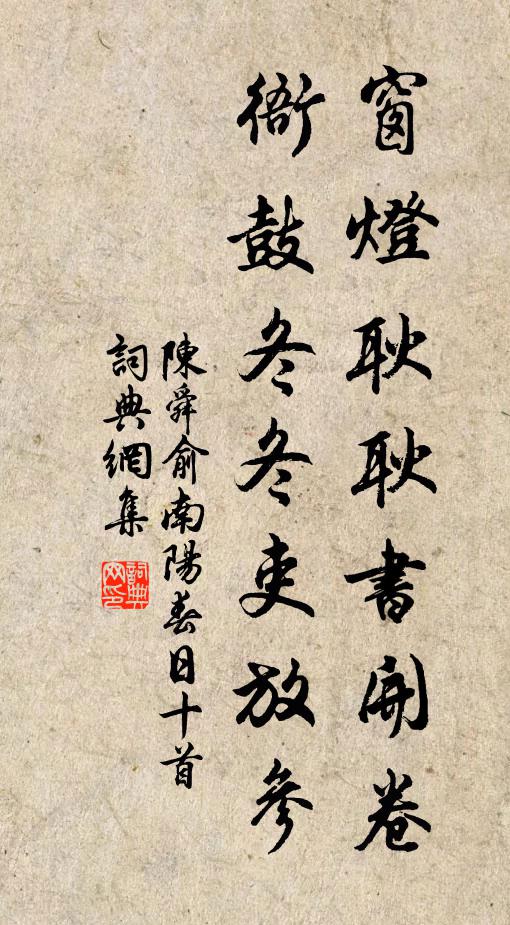 窗燈耿耿書開卷
衙鼓冬冬吏放參
陳舜俞南陽春日十首
詞典網集
詞典
网